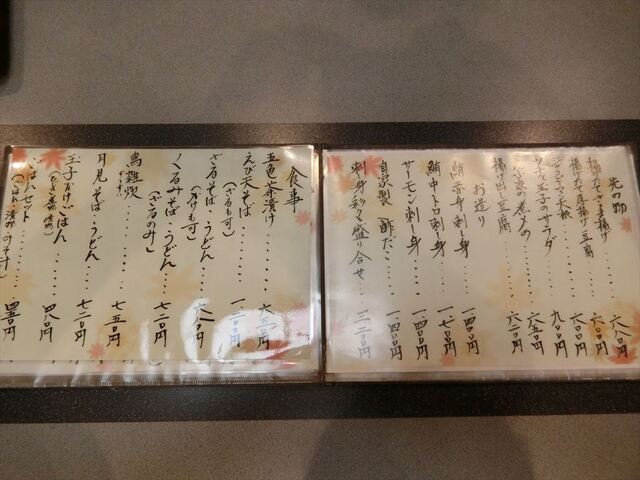 先の物
揚げたてさつま揚げ・・・六八〇円
揚げたて厚揚げ豆腐・・・六〇〇円
ツナと玉子のサラダ・・・九〇〇円
揚げ出し豆腐・・・六二〇円
お造り
鮪赤身刺し身・・・一、四〇〇円
鮪中トロ刺身・・・一、七〇〇円
サーモン刺し身・・・一、四〇〇円
自家製〆酢だこ・・・一、四〇〇円
刺し身彩々盛り合せ・・・二、二〇〇円
食事
五色茶漬け・・・・・六五〇円
えび天そば・・・・・一、二〇〇円
(ざるも可)
ざるそば・うどん
(かけも可)
くるみそば・うどん・・・七二〇円
(ざるのみ)
鳥雑炊・・・・・七五〇円
月見そば・うどん・・・七二〇円
玉子かけごはん・・・四八〇円
ごはんセット・・・四五〇円
(ごはん・漬物・みそ汁)